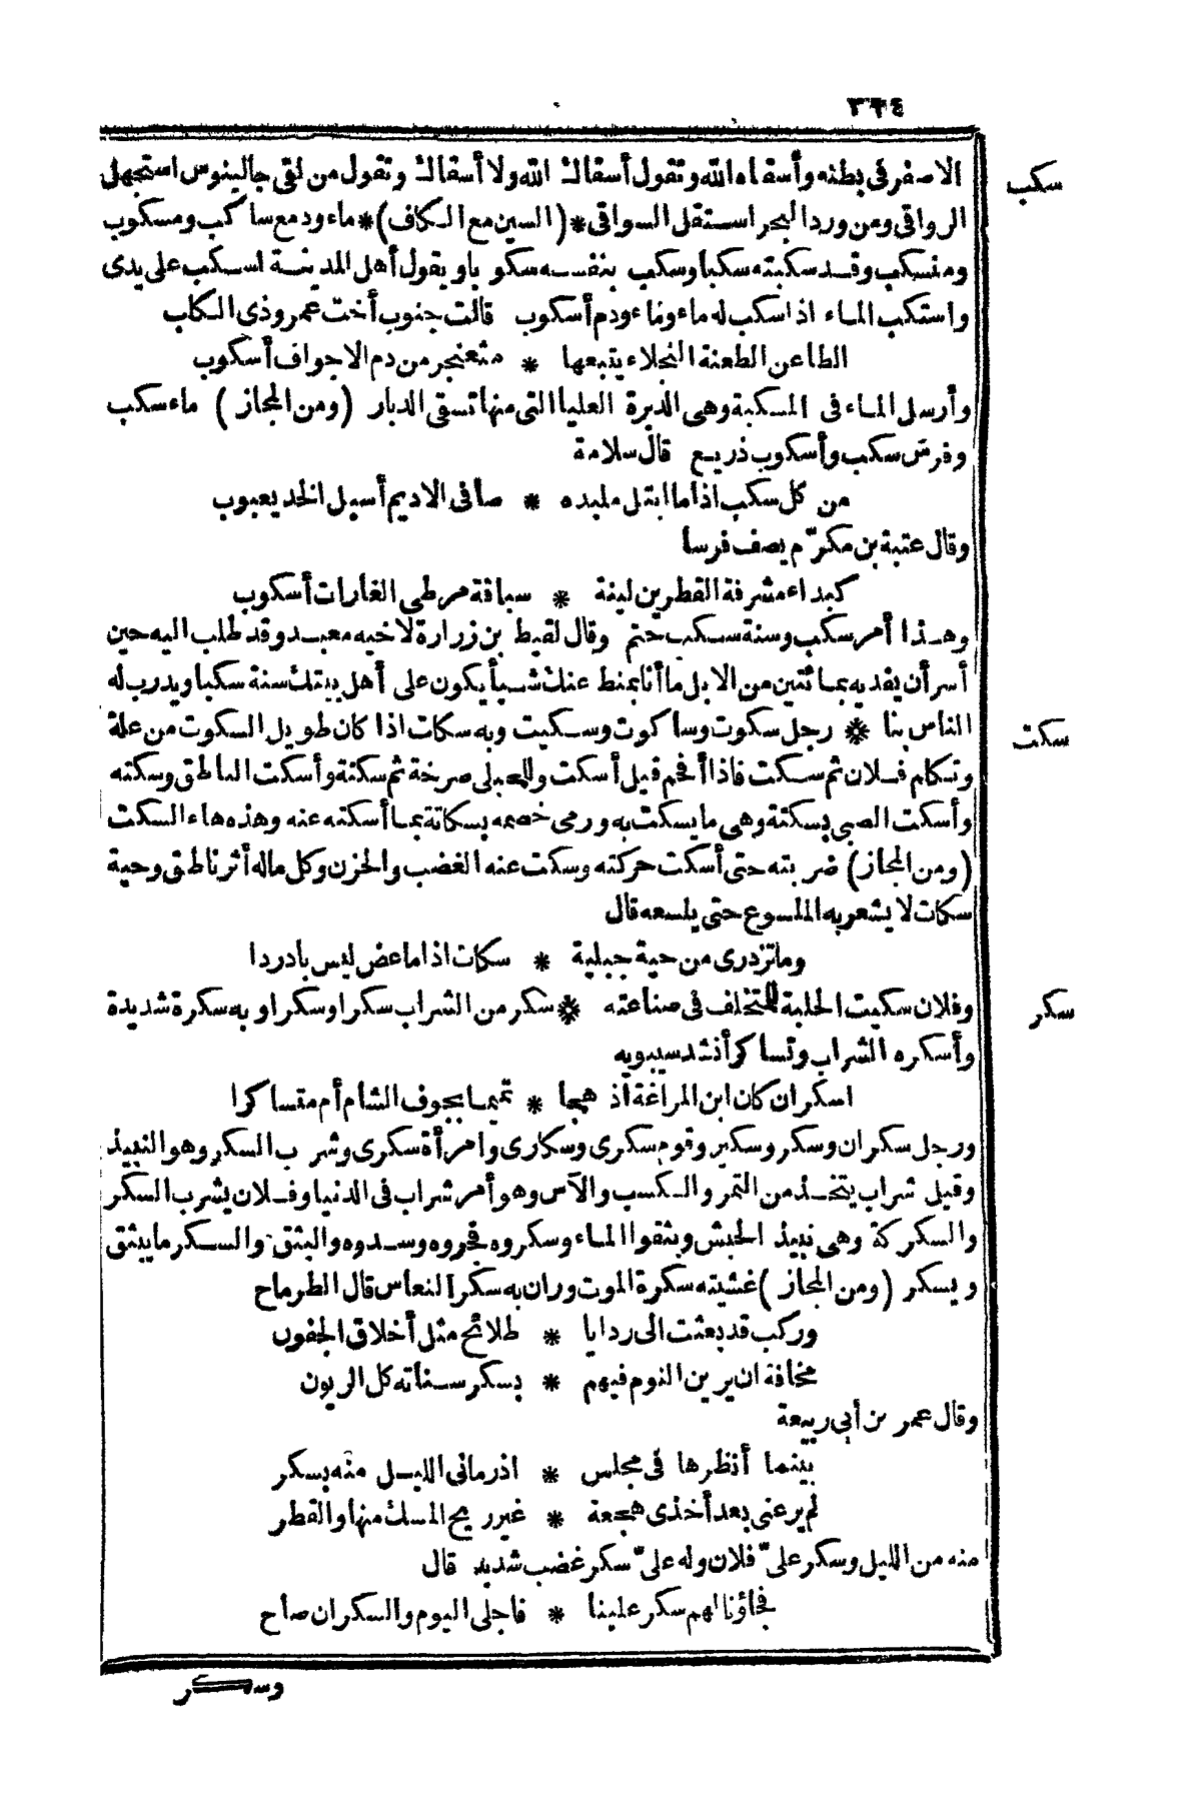 ٣٤٤
الاصفر فى بطنه وأسقاه الله وتقول أسقاك الله ولا أسقاك وتقول من لقى جالينوس استجهل
سكب
الرواقى ومن ورد البحر استقل السواقى * (السين مع الكاف) * ماء ودمع ساكب ومسكوب
ومنسكب وقد سكبته سكبا وسكب بنفسه سكوبا ويقول أهل المدينة اسكب على يدى
واستكب الماء اذا سكب له ماء وماء ودم أسكوب قالت جنوب أخت عمرو ذى الكلب
الطاعن الطعنة النجلاء يتبعها * مثعنجر من دم الاجواف أسكوب
وأرسل الماء فى المسكبة وهى الدبرة العليا التى منها تسقى الدبار (ومن المجاز) ماء سكب
وفرس سكب وأسكوب ذريع قال سلامة
من كل سكب اذا ما ابتل ملبده * صافى الاديم أسيل الخد يعبوب
وقال عتبة بن مكرّم يصف فرسا
كبداء مشرفة القطرين لينة * سباقة مرطى الغارات أسكوب
وهذا أمر سكب وسنة سكب حتم وقال لقيط بن زرارة لاخيه معبد وقد طلب اليه حين
أسر أن يفديه بمائتين من الابل ما أنا بمنط عنك شيأ يكون على أهل بيتك سنة سكبا ويدرب له
الناس بنا * رجل سكوت وساكوت وسكيت وبه سكات اذا كان طويل السكوت من علة
سكت
وتكلم فلان ثم سكت فاذا أفحم قيل أسكت وللحبلى صرخة ثم سكتة وأسكت الناطق وسكته
وأسكت الصبى بسكتة وهى ما يسكت به ورمى خصمه بسكاتة بما أسكته عنه وهذه هاء السكت
(ومن المجاز) ضربته حتى أسكت حركته وسكت عنه الغضب والحزن وكل ماله أثر ناطق وحية
سكات لا يشعر به الملسوع حتى يلسعه قال
وما تزدرى من حية جبلية * سكات اذا ما عض ليس بادردا
وفلان سكيت الحلبة للمتخلف فى صناعته * سكر من الشراب سكرا وسكرا وبه سكرة شديدة
سكر
وأسكره الشراب وتساكر أنشد سيبويه
اسكران كان ابن المراغة اذ هجا * تميما بجوف الشام أم متساكرا
ورجل سكران وسكر وسكير وقوم سكرى وسكارى وامرأة سكرى وشرب السكر وهو النبيذ
وقيل شراب يتخذ من التمر والكسب والآس وهو أمر شراب فى الدنيا وفلان يشرب السكر
والسكركة وهى نبيذ الحبش وبثقوا الماء وسكروه فجروه وسدوه والبثق والسكر ما يبثق
ويسكر (ومن المجاز) غشيته سكرة الموت وران به سكر النعاس قال الطرماح
وركب قد بعثت الى ردايا * طلائح مثل أخلاق الجفون
مخافة ان يرين النوم فيهم * بسكر سناته كل الريون
وقال عمر بن أبى ربيعة
بينما أنظرها فى مجلس * اذ رمانى الليل منه بسكر
لم يرعنى بعد أخذى هجعة * غير ريح المسك منها والقطر
منه من الليل وسكر علىّ فلان وله علىّ سكر غضب شديد قال
فجاؤنا لهم سكر علينا * فاجلى اليوم والسكران صاح
وسكر